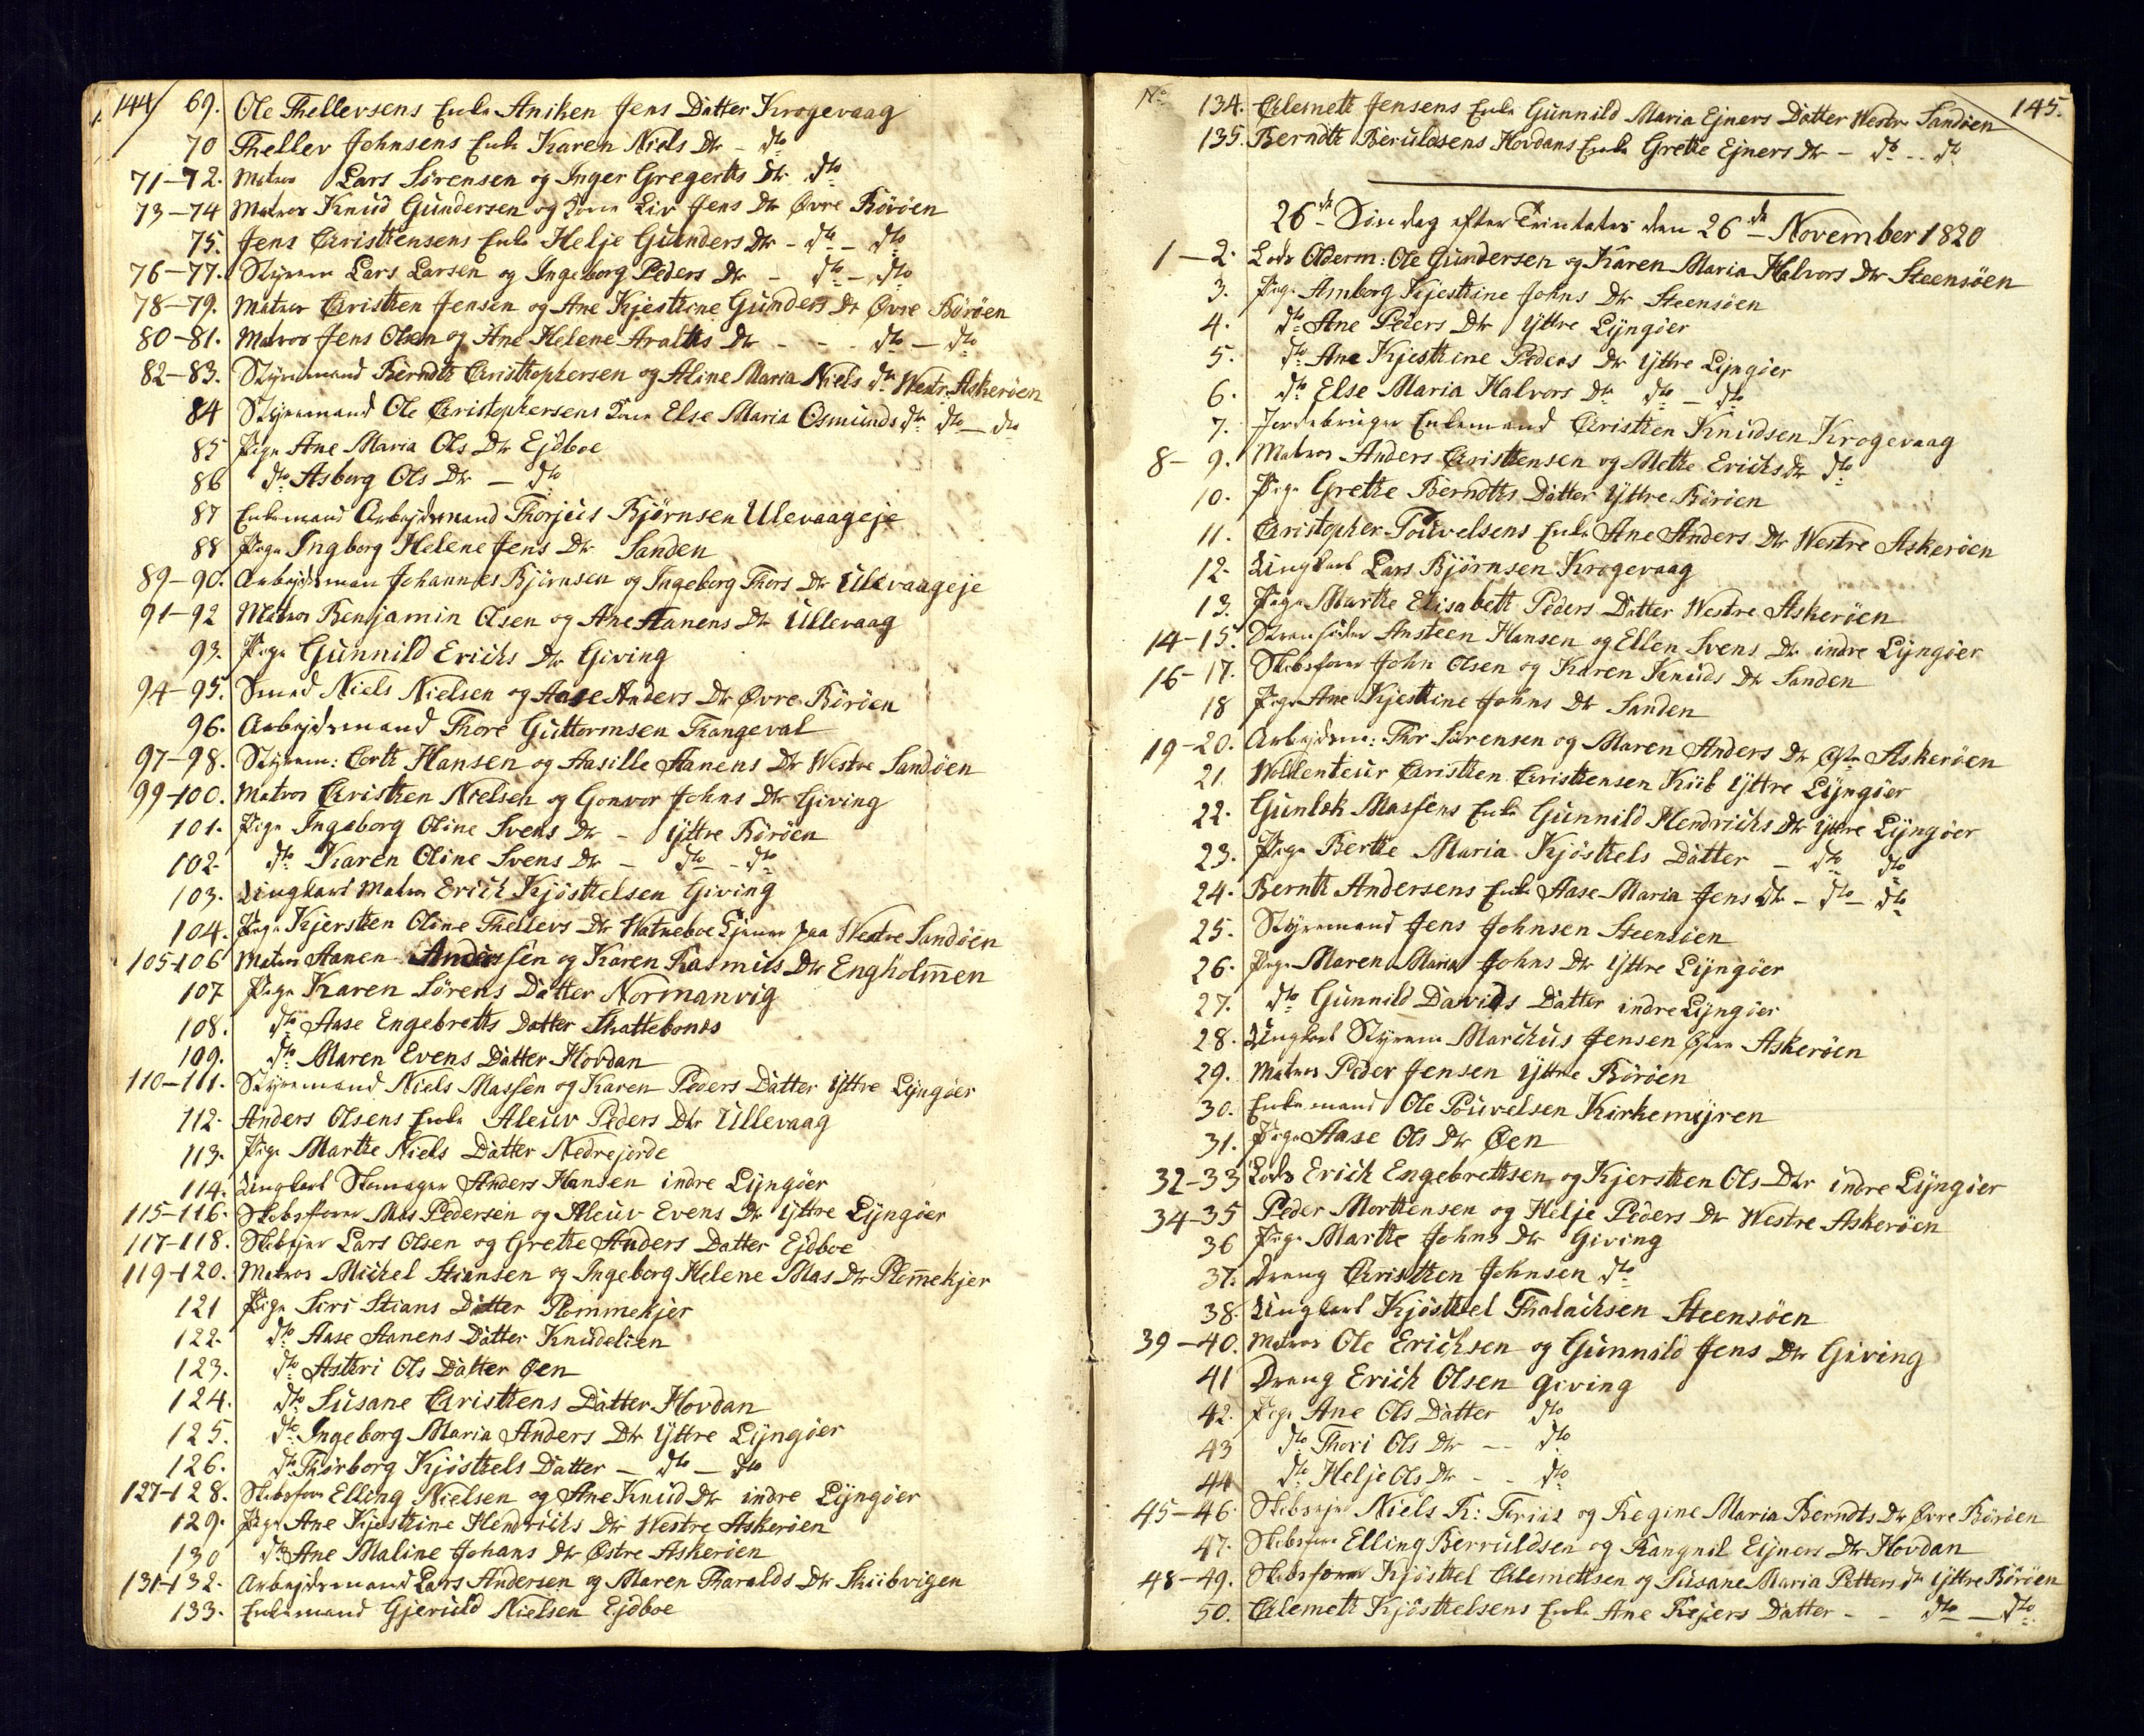 144
69. Ole Thellersens Enke Aniken Jens Datter Krogevaag
70 Theller Johnsens Enke Karen Niels Dtr - dto
71-72. Matros Lars Sørensen og Inger Gregerths Dtr dto
73-74 Matros Knud Gundersen og Kone Liv Jens Dtr Øvre Börøen
75. Jens Christhensens Enke Helje Gunders Dtr - dto - dto
76-77. Styrem Lars Larsen og Ingeborg Peders Dtr - dto - dto
78-79. Matros Christhen Jensen og Ane Kjesthine Gunders Dr Øvre Börøen
80-81. Matros Jens Olsen og Ane Helene Aralths Dtr - - dto - dto
82-83. Styremand Berndth Christhophersen og Aline Maria Niels dtr Westre Askerøen
84 Styremand Ole Christophersens Kone Else Maria Osmunds dtr dto - dto
85 Pige Ane Maria Ols Dtr Ejdboe
86 dto Asborg Ols Dtr - dto
87 Enkemand Arbejdsmand Thorjus Bjørnsen Ulevaageje
88 Pige Ingborg Helene Jens Dtr Sanden
89-90. Arbejdsman Johannes Bjørnsen og Ingeborg Thors Dtr Ulevaageje
91-92 Matros Benjamin Olsen og Ane Aanens Dtr Ullevaag
93. Pige Gunnild Erichs Dtr Giving
94-95. Smed Niels Nielsen og Aase Anders Dtr Øvre Börøen
96. Arbejdsmand Thore Guttormsen Thangeval
97-98. Styrem: Corth Hansen og Aasille Aanens Dtr Westre Sandøen
99-100. Matros Christhen Nielsen og Gonvor Johns Dtr Giving
101. Pige Ingeborg Oline Svens Dtr - Yttre Börøen
102. dto Karen Oline Svens Dtr - dto - dto
103. Ungkarl Matros Erich Kjösthelsen Giving
104. Pige Kjersthen Oline Thellers Dtr Watneboe tjener paa Westre Sandøen
105-106 Matros Aanen Andersen og Karen Rasmus Dtr Engholmen
107 Pige Karen Sörens Datter Normanvig
108. dto Aase Engebreths Datter Skattebonds
109. dto Maren Evens Datter Hovdan
110-111. Styremand Niels Massen og Karen Peders Datter Yttre Lyngøer
112. Anders Olsens Enke Aleuv Peders Dtr Ullevaag
113. Pige Marthe Niels Datter Nedrejorde
114. Ungkarl Skomager Anders Hansen indre Lyngøer
115-116. Skibsfører Mas Pedersen og Aleuv Evens Dtr Yttre Lyngøer
117-118. Skibsejer Lars Olsen og Grethe Anders Datter Ejdboe
119-120. Matros Michel Stiansen og Ingeborg Helene Mas Dtr Plommekjer
121 Pige Siri Stians Datter Plommekjer
122. dto Aase Aanens Datter Knudelien
123. dto Asthri Ols Datter Øen
124. dto Susane Christhens Datter Hovdan
125. dto Ingeborg Maria Anders Dtr Yttre Lyngøer
126. dto Thorborg Kjösthels Datter - dto - dto
127-128. Skibsfører Elling Nielsen og Ane Knud Dtr indre Lyngøer
129. Pige Ane Kjesthine Hendrichs Dtr Westre Askerøen
130 dto Ane Maline Johans Dtr Østre Askerøen
131-132. Arbejdsmand Lars Andersen og Maren Tharalds Dtr Skibvigen
133. Enkemand Gjeruld Nielsen Ejdboe
No 145.
134. Clemeth Jensens Enke Gunnild Maria Ejners Datter Westre Sandøen
135. Berndth Beruldsens Hovdans Enke Grethe Ejners Dtr - dto - dto
26de Söndag efter Trinitates den 26de November 1820
1-2. Lods Olderm: Ole Gundersen og Karen Maria Halvors Dtr Steensøen
3. Pige Amborg Kjesthine Johns Dtr Steensøen
4. dto Ane Peders Dtr Yttre Lyngøer
5. dto Ane Kjesthine Peders Dr Yttre Lyngøer
6. dto Else Maria Halvors Dtr dto - dto
7. Jordebruger Enkemand Christhen Knudsen Krogevaag
8-9. Matros Anders Christhensen og Methe Erichs dtr dto
10. Pige Grethe Berndths Datter Yttre Börøen
11. Christopher Pouvelsens Enke Ane Anders Dtr Westre Askerøen
12. Ungkarl Lars Bjørnsen Krogevaag
13. Pige Marthe Elisabeth Peders Datter Westre Askerøen
14-15. Strandsider Ansteen Hansen og Ellen Svens Dtr indre Lyngøer
16-17. Skibsfører John Olsen og Karen Knuds Dtr Sanden
18 Pige Ane Kjesthine Johns Dtr Sanden
19-20. Arbejdsm: Thor Sörensen og Maren Anders Dtr Østre Askerøen
21. Wollenteur Christhen Christhensen Kiib Yttre Lyngøer
22. Gunlek Massens Enke Gunnild Hendrichs Dtr Yttre Lyngøer
23. Pige Berthe Maria Kjösthels Datter - dto dto
24. Bernth Andersens Enke Aase Maria Jens Dtr - dto - dto
25. Styremand Jens Johnsen Steensøen
26. Pige Maren Maria Johns Dtr Yttre Lyngøer
27. dto Gunnild Davids Datter indre Lyngøer
28. Ungkarl Styrem Marchus Jensen Østre Askerøen
29. Matros Peder Jensen Yttre Börøen
30. Enkemand Ole Pouvelsen Kirkemyren
31. Pige Aase Ols Dtr Øen
32-33 Lods Erich Engebrethsen og Kjersthen Ols Dtr indre Lyngøer
34-35 Peder Morthensen og Helje Peders Dtr Westre Askerøen
36 Pige Marthe Johns Dtr Giving
37. Dreng Christhen Johnsen dto
38. Ungkarl Kjösthel Thalachsen Steensøen
39-40. Matros Ole Erichsen og Gunnild Jens Dtr Giving
41 Dreng Erich Olsen Giving
42. Pige Ane Ols Datter dto
43 dto Thori Ols Dtr - - dto
44 dto Helje Ols Dtr - - dto
45-46. Skibsejer Niels R: Friis og Regine Maria Berndts Dr Øvre Börøen
47. Skibsfører Elling Berruldsen og Rangnil Ejners Dtr Hovdan
48-49. Skibsfører Kjösthel Clemethsen og Susane Maria Petters dtr Yttre Börøen
50. Clemeth Kjösthelsens Enke Ane Rejers Datter - - dto - dto